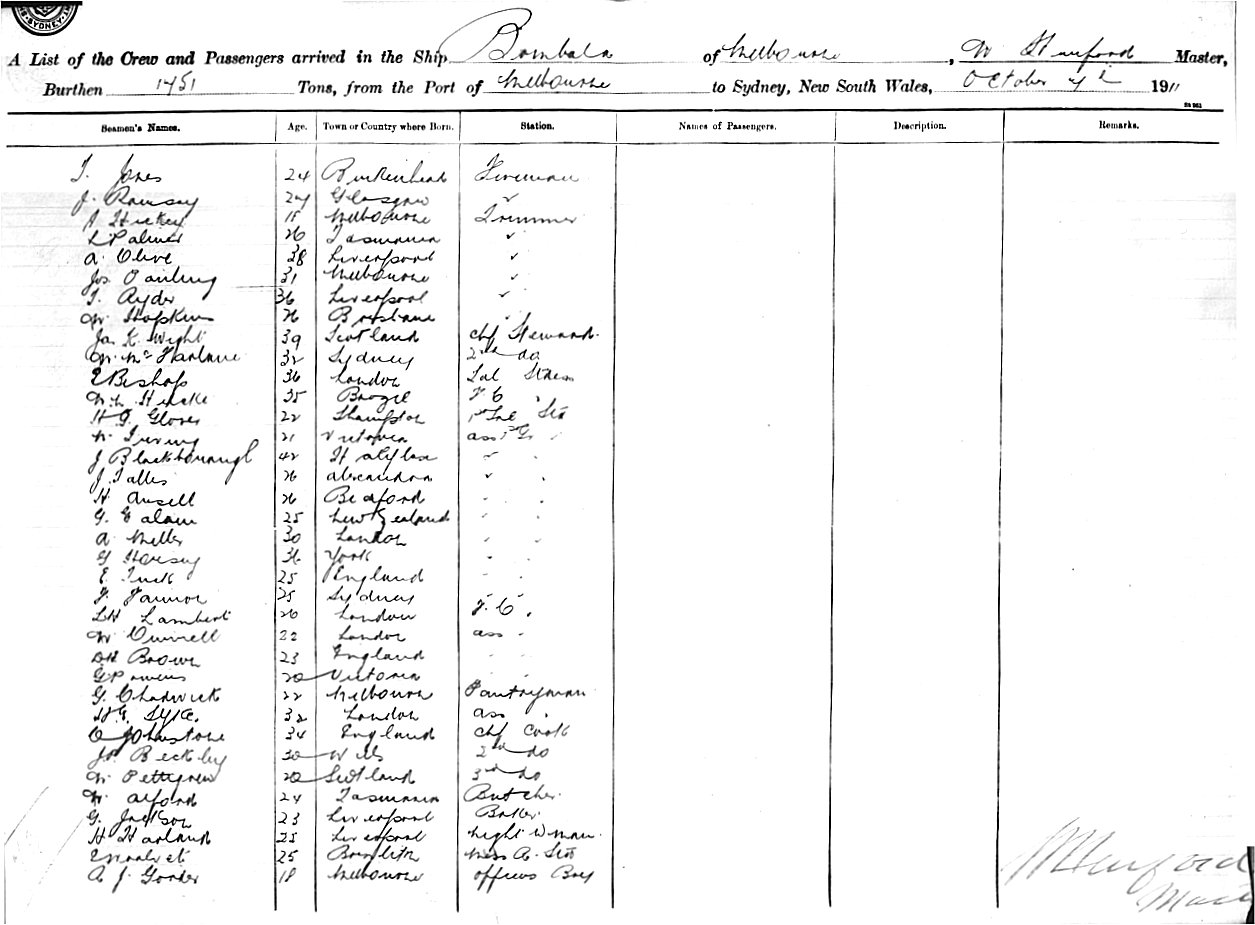 SYDNEY
A List of the Crew and Passengers arrived in the Ship Bombala of Melbourne, W Hurford Master,
Burthen 1451 Tons, from the Port of Melbourne to Sydney, New South Wales, October 1911
Seamen's Names. Age. Town or Country where Born. Station. Names of Passengers. Description. Remarks.
T. Jones 24 Birkenhead Fireman
J. Ramsay 27 Glasgow ✓
Hickey 18 Melbourne Trimmer
L Palmer 26 Tasmania ✓
A. Olive 38 Liverpool ✓
Jos. Pauling 31 Melbourne ✓
T. Ryder 36 Liverpool ✓
W. Hopkins 26 Brisbane
Jas K. Wight 39 Scotland Chf Steward
W. McFarlane 32 Sydney 2nd do
E Bishop 36 London Sal Stress
35 F C
H G. Glover 22 S'hampton 1st Sal Std
W. Irving 21 Victoria ass
J Blackborough 42 Halifax
J. Tallis 26 Alexandria
H Ansell 26 Bedford
G. 25 New Zealand
A Meller 30 London
G Hersey 36 York
E. Tuck 25 England
F. 25 Sydney
L H Lambert 20 London F. C.
W. 22 London ass
DH Brown 23 England
G Powers 20 Victoria
G. Chadwick 22 Melbourne Pantryman
32 London ass
C Johnstone 34 England Chf Cook
Js. Beckley 30 Wilts 2nd do
W. Pettigrew 20 Scotland 3rd do
W. Alford 24 Tasmania Butcher
G. Jackson 23 Liverpool Baker
H Harland 25 Liverpool Night W man
25 Mess R. Std
A J. Gorder 18 Melbourne Officers Boy
W Hurford
Master